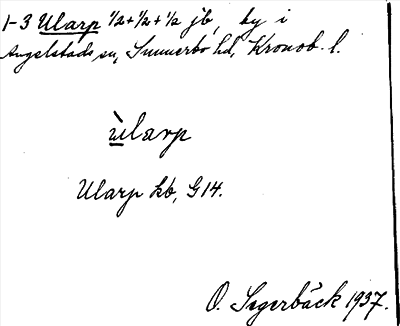 1-3 Ularp 1/2+1/2+1/2 jb, by i
Angelstads sn, Sunnerbo hd, Kronob. l.
ùlarp
Ularp kb, G14.
O. Segerbäck 1937.